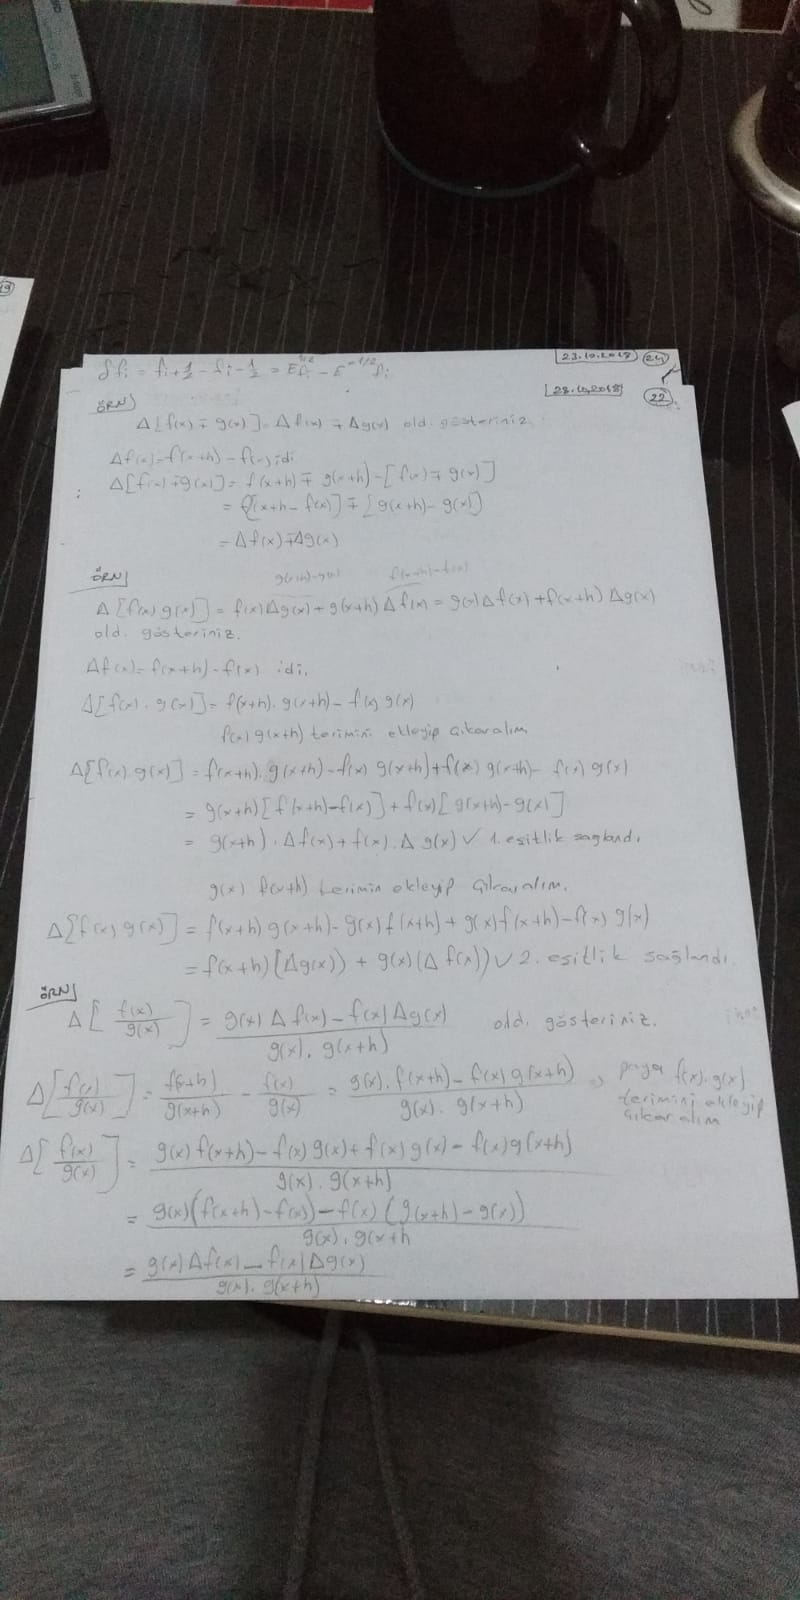 23.10.2018 24
δfi = fi+1/2 - fi-1/2 = E^1/2 fi - E^-1/2 fi
23.10.2018 22
ÖRN
Δ[f(x) ∓ g(x)] = Δf(x) ∓ Δg(x) old. gösteriniz
Δf(x) = f(x+h) - f(x) idi
Δ[f(x) ∓ g(x)] = f(x+h) ∓ g(x+h) - [f(x) ∓ g(x)]
= [f(x+h - f(x)] ∓ [g(x+h) - g(x)]
= Δf(x) ∓ Δg(x)
ÖRN
g(x+h)-g(x) f(x+h)-f(x)
Δ[f(x) g(x)] = f(x)Δg(x) + g(x+h) Δf(x) = g(x)Δf(x) + f(x+h) Δg(x)
old. gösteriniz.
Δf(x) = f(x+h) - f(x) idi.
Δ[f(x) . g(x)] = f(x+h). g(x+h) - f(x) g(x)
f(x) g(x+h) terimini ekleyip çıkaralım
Δ[f(x) g(x)] = f(x+h). g(x+h) - f(x) g(x+h) + f(x) g(x+h) - f(x) g(x)
= g(x+h) [f(x+h) - f(x)] + f(x) [g(x+h) - g(x)]
= g(x+h) . Δf(x) + f(x) . Δg(x) ✓ 1. eşitlik sağlandı.
g(x) f(x+h) terimin ekleyip çıkaralım.
Δ[f(x) g(x)] = f(x+h) g(x+h) - g(x) f(x+h) + g(x) f(x+h) - f(x) g(x)
= f(x+h) (Δg(x)) + g(x) (Δf(x)) ✓ 2. eşitlik sağlandı.
ÖRN
Δ[f(x)/g(x)] = g(x) Δf(x) - f(x) Δg(x) / g(x). g(x+h) old. gösteriniz.
Δ[f(x)/g(x)] = f(x+h)/g(x+h) - f(x)/g(x) = g(x). f(x+h) - f(x) g(x+h) / g(x). g(x+h) ⇒ paya f(x).g(x)
terimini ekleyip
çıkaralım
Δ[f(x)/g(x)] = g(x) f(x+h) - f(x) g(x) + f(x) g(x) - f(x) g(x+h) / g(x). g(x+h)
= g(x)(f(x+h) - f(x)) - f(x) (g(x+h) - g(x)) / g(x). g(x+h
= g(x) Δf(x) - f(x) Δg(x) / g(x). g(x+h)